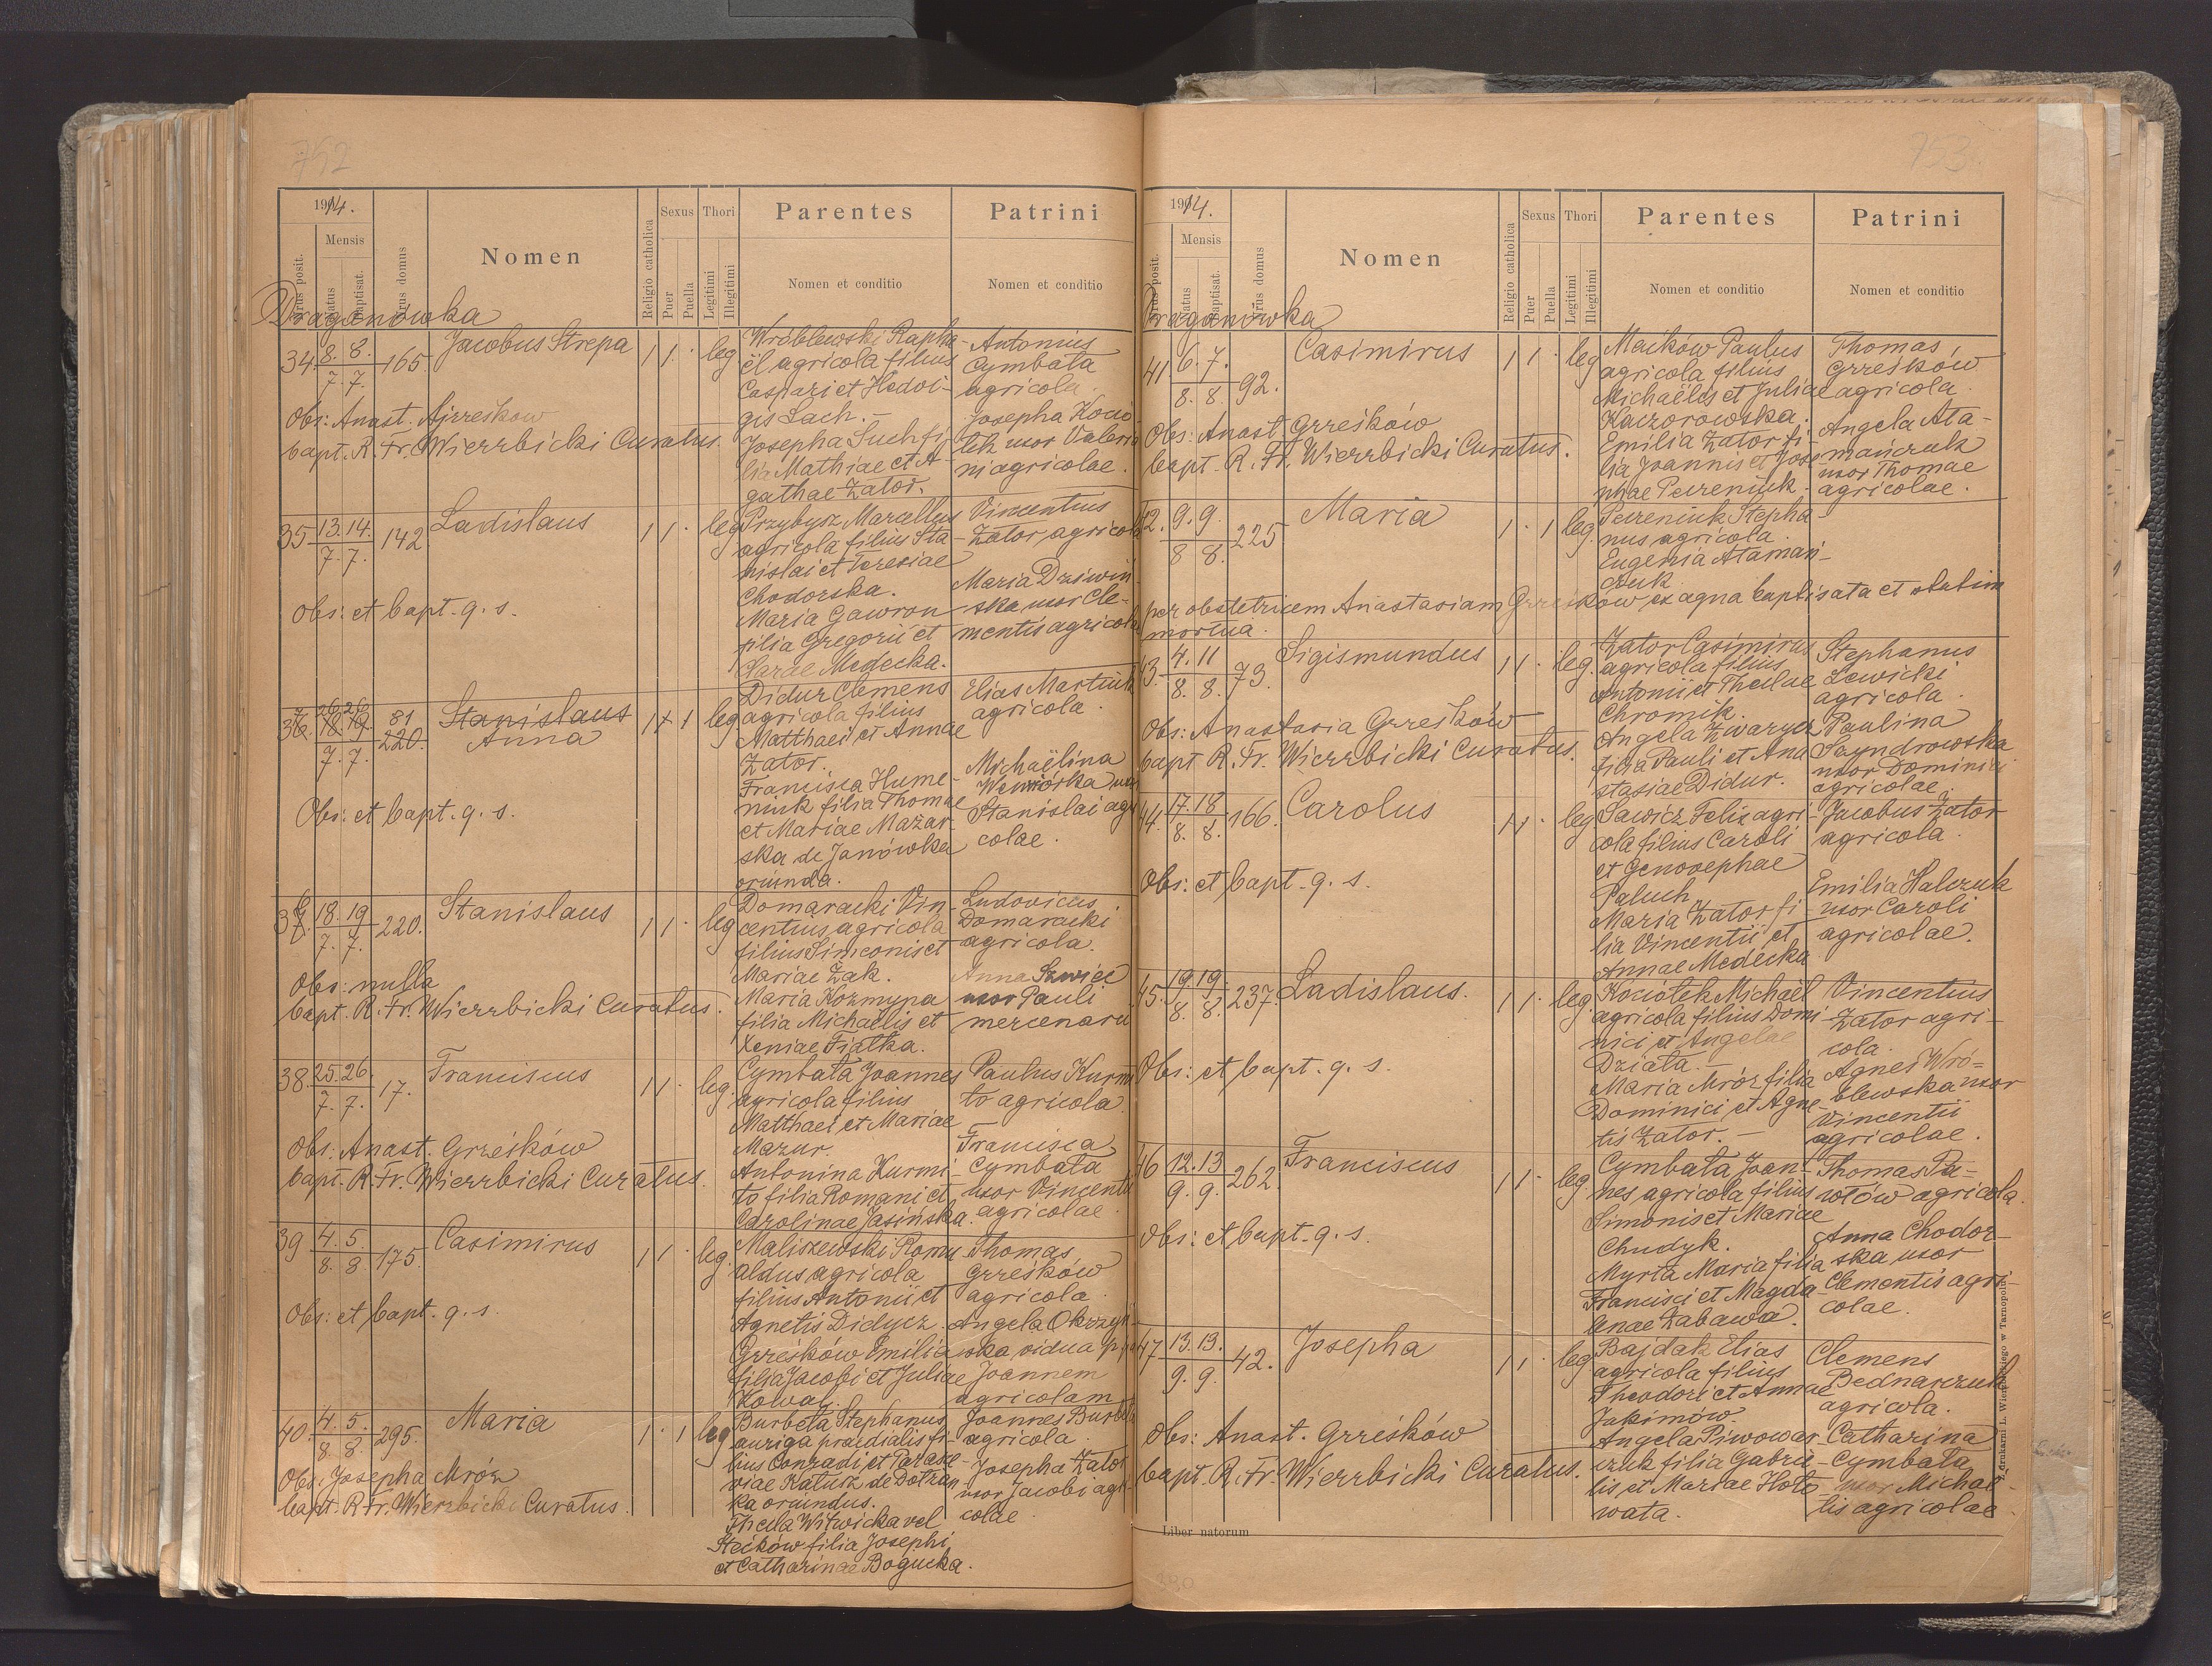 752
1914.
Mensis
Nrus posit.
Natus
Baptisat.
Nrus domus
Nomen
Religio catholica
Sexus
Puer
Puella
Thori
Legitimi
Illegitimi
Parentes
Nomen et conditio
Patrini
Nomen et conditio
Draganówka
34 8. 8. 165. Jacobus Strepa 1 1 · leg
7. 7.
Wróblewski Rapha-
ël agricola filius
Caspari et Hedvi-
gis Lach. –
Josepha Such fi-
lia Mathiae et A-
gathae Zator.
Antonius
Cymbała
agricola.
Josepha Kocio
łek uxor Valeria
ni agricolae.
Obs: Anast.
bapt. R. Fr. Wierzbicki Curatus.
35 13. 14. 142 Ladislaus 1 1 · leg
7. 7.
Przybysz Marcellus
agricola filius Sta-
nislai et Teresiae
Chodorska.
Maria Gawron
filia Gregorii et
Sarae Medecka.
Vincentius
Zator agricola
Maria Dziwiń-
ska uxor Cle-
mentis agricola
Obs: et bapt. q. s.
36. 26. 26. 81 Stanislaus 1 + 1 leg
18. 19. 220. Anna
7. 7.
Didur Clemens
agricola filius
Matthaei et Annae
Zator.
Francisca Hume-
niuk filia Thomae
et Mariae Mazur-
ska de Janówka
oriunda.
Elias Martiuk
agricola.
Michaëlina
Stanislai agri
colae.
Obs: et bapt. q. s.
37 18. 19 220. Stanislaus 1 1 · leg
7. 7.
Domaracki Vin-
centius agricola
filius Simeonis et
Mariae Żak.
Maria Kozmyna
filia Michaëlis et
Xeniae Fiałka.
Ludovicus
Domaracki
agricola.
Anna Szwiec
uxor Pauli
mercenarii
Obs: nulla
bapt. R. Fr. Wierzbicki Curatus.
38. 25. 26. 17. Franciscus 1 1 · leg.
7. 7.
Cymbała Joannes
agricola filius
Matthaei et Mariae
Mazur.
Antonina Kurmi-
to filia Romani et
Carolinae Jasińska.
Paulus Kurmi
to agricola.
Francisca
Cymbała
uxor Vincentii
agricolae.
Obs: Anast. Grześków
bapt. R. Fr. Wierzbicki Curatus.
39 4. 5. 175. Casimirus 1 1 · leg.
8. 8.
Maliszewski Romu
aldus agricola
filius Antonii et
Agnetis Didycz.
Grześków Emilia
filia Jacobi et Juliae
Kowal.
Thomas
Grześków
agricola.
Angela Okrzyń-
ska vidua p.
Joannem
agricolam
Obs: et bapt. q. s.
40. 4. 5. 295. Maria 1 · 1 leg
8. 8.
Burbeła Stephanus
auriga praedialis fi-
lius Conradi et Paraske-
viae Katusz de Dołżan
ka oriundus.
Thecla Witwicka vel
Stećków filia Josephi
et Catharinae Bogucka.
Joannes Burbeła
agricola.
Josepha Zator
uxor Jacobi agri-
colae.
Obs: Josepha Mróz
bapt. R. Fr. Wierzbicki Curatus.
753
1914.
Mensis
Nrus posit.
Natus
Baptisat.
Nrus domus
Nomen
Religio catholica
Sexus
Puer
Puella
Thori
Legitimi
Illegitimi
Parentes
Nomen et conditio
Patrini
Nomen et conditio
Draganówka
41 6. 7. 92. Casimirus 1 1 · leg
8. 8.
Maików Paulus
agricola filius
Michaëlis et Juliae
Kaczorowska.
Emilia Zator fi-
lia Joannis et Jose
phae Pezreniuk.
Thomas
Grześków
agricola
Angela Ata-
mańczuk
uxor Thomae
agricolae.
Obs: Anast. Grześków
bapt. R. Fr. Wierzbicki Curatus.
42. 9. 9. 225 Maria 1 · 1 leg.
8 8.
Pezreniuk Stepha-
nus agricola.
Eugenia Ataman-
czuk.
per obstetricem Anastasiam Grześków ex aqua baptisata et statim
mortua.
43. 4. 11 73. Sigismundus 1 1 · leg.
8. 8.
Zator Casimirus
agricola filius
Antonii et Theclae
Chromik.
Angela Zwarycz
filia Pauli et Ana
stasiae Didur.
Stephanus
Lewicki
agricola.
Paulina
uxor Dominici
agricolae.
Obs: Anastasia Grześków
bapt R. Fr. Wierzbicki Curatus.
44. 17. 18 166. Carolus 1 1 · leg
8. 8.
Sawicz Felix agri-
cola filius Caroli
et Genovephae
Paluch
Maria Zator fi-
lia Vincentii et
Annae Medecka
Jacobus Zator
agricola.
Emilia Halczuk
uxor Caroli
agricolae.
Obs: et bapt. q. s.
45. 19. 19 237. Ladislaus. 1 1 · leg.
8. 8.
Kociołek Michaël
agricola filius Domi-
nici et Angelae
Działa. –
Maria Mróz filia
Dominici et Agne-
tis Zator. –
Vincentius
Zator agri-
cola.
Agnes Wró-
blewska uxor
Vincentii
agricolae.
Obs: et bapt. q. s.
46 12. 13 262. Franciscus 1 1 · leg.
9. 9.
Cymbała Joan-
nes agricola filius
Simonis et Mariae
Chudyk.
Myrta Maria filia
Francisci et Magda-
lenae Zabawa.
Thomas Pa-
włów agricola.
Anna Chodor-
ska uxor
Clementis agri-
colae.
Obs: et bapt. q. s.
47 13. 13. 42. Josepha 1 1 · leg
9. 9.
Bajdak Elias
agricola filius
Theodori et Annae
Jakimów.
Angela Piwowar-
czuk filia Gabrie-
lis et Mariae Hoło-
wata.
Clemens
Bednarczuk
agricola.
Catharina
Cymbała
uxor Michaë-
lis agricolae.
Obs: Anast. Grześków
bapt. R. Fr. Wierzbicki Curatus.
Liber natorum
Z drukarni L. Wierzbickiego w Tarnopolu